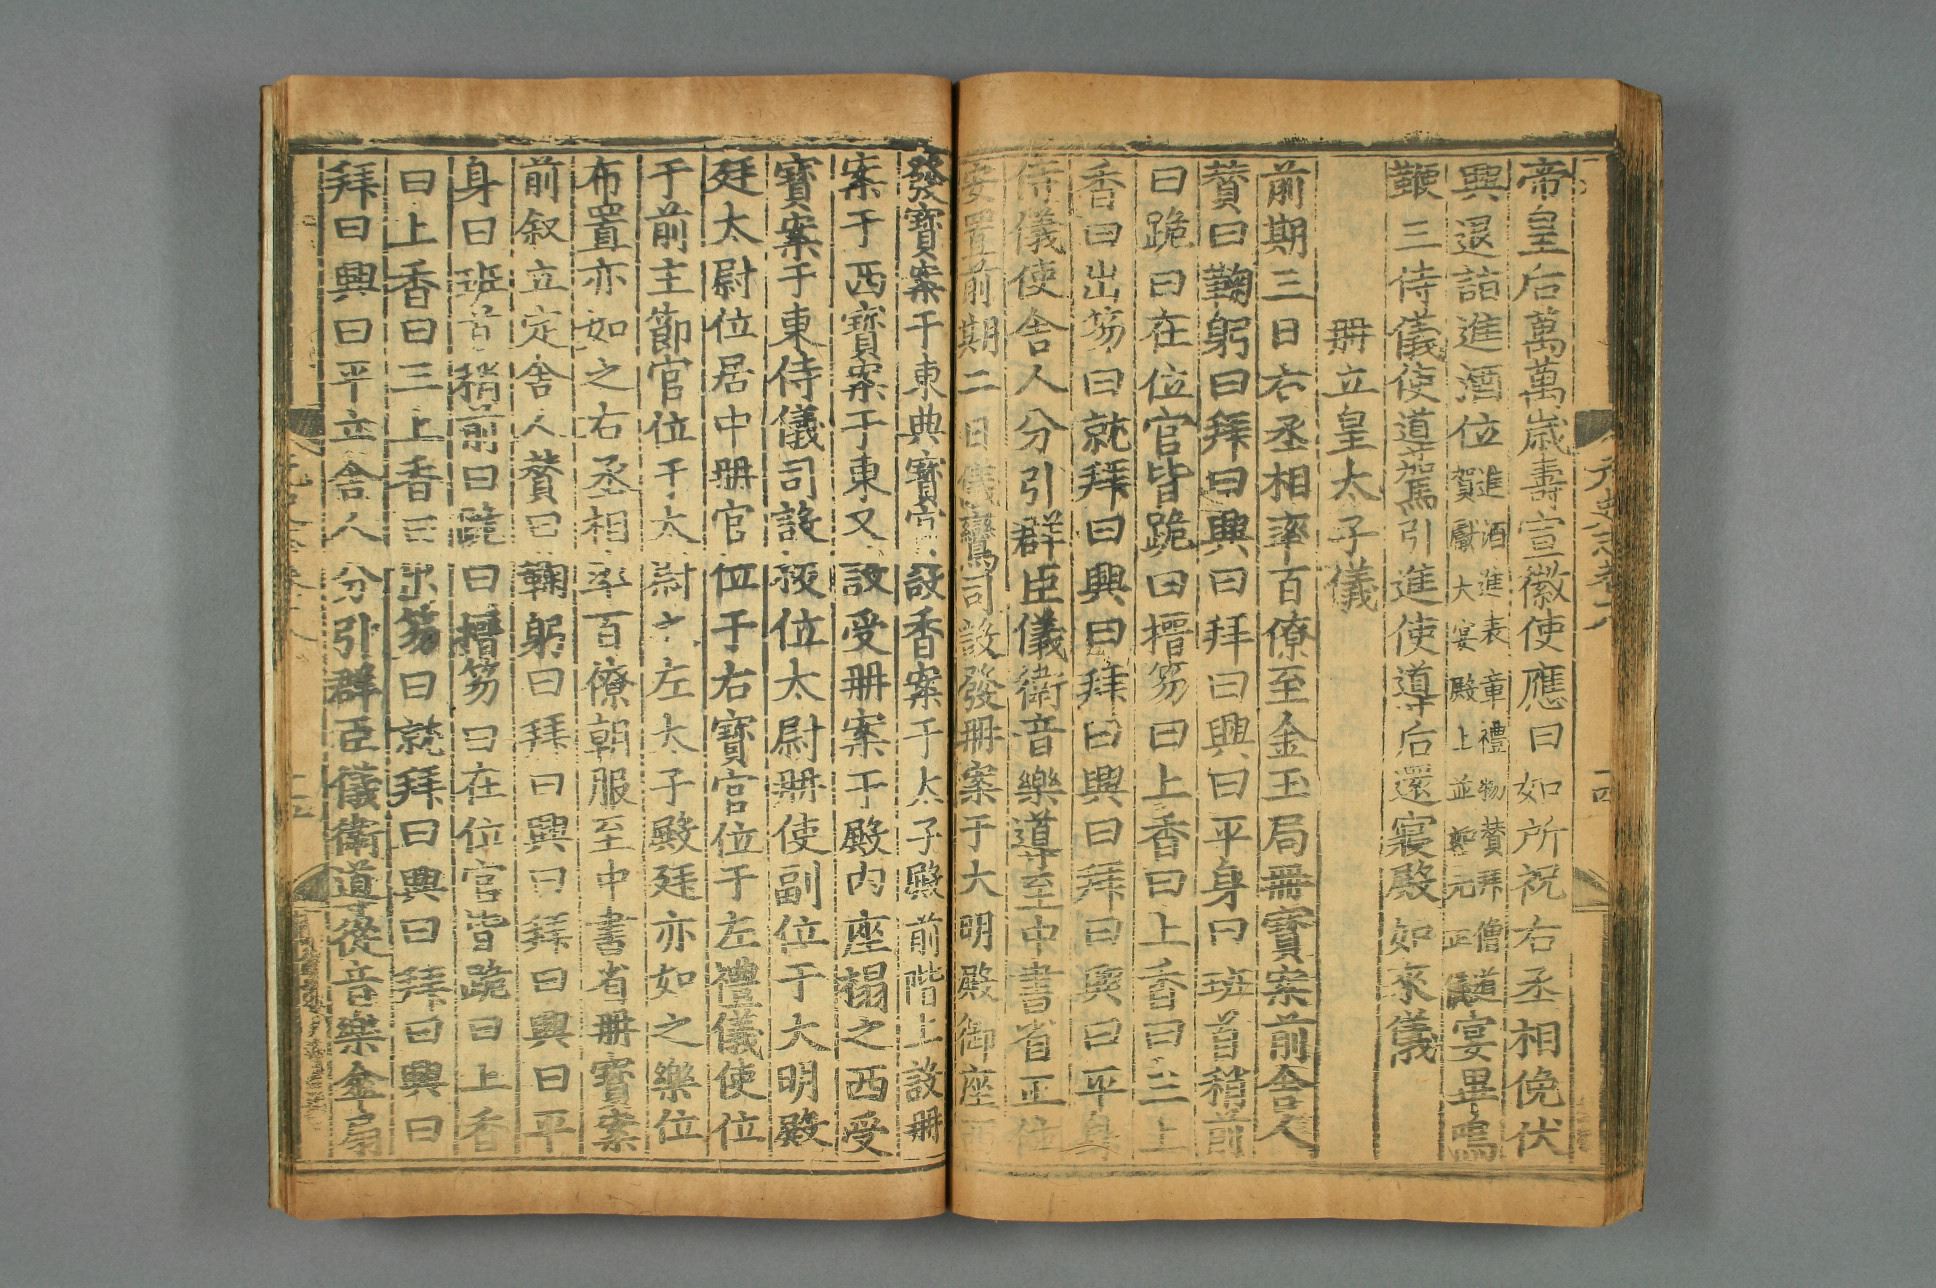 帝皇后萬萬歲壽宣徽使應曰如所祝右丞相俛伏
興退詣進酒位進酒進表章禮物贊拜僧道賀獻大宴殿上並如元正儀宴畢鳴
鞭三侍儀使導駕引進使導后還寢殿如來儀
冊立皇太子儀
前期三日右丞相率百僚至金玉局冊寶案前舍人
贊曰鞠躬曰拜曰興曰拜曰興曰平身曰班首稍前
曰跪曰在位官皆跪曰搢笏曰上香曰上香曰三上
香曰出笏曰就拜曰興曰拜曰興曰拜曰興曰平身
侍儀使舍人分引群臣儀衛音樂導至中書省正位
安置前期二日儀鸞司設發冊案于大明殿御座西
發寶案于東典寶官設香案于太子殿前階上設冊
案于西寶案于東又設受冊案于殿內座榻之西受
寶案于東侍儀司設板位太尉冊使副位于大明殿
廷太尉位居中冊官位于右寶官位于左禮儀使位
于前主節官位于太尉之左太子殿廷亦如之樂位
布置亦如之右丞相率百僚朝服至中書省冊寶案
前叙立定舍人贊曰鞠躬曰拜曰興曰拜曰興曰平
身曰班首稍前曰跪曰搢笏曰在位官皆跪曰上香
曰上香曰三上香曰出笏曰就拜曰興曰拜曰興曰
拜曰興曰平立舍人分引群臣儀衛導從音樂金扇